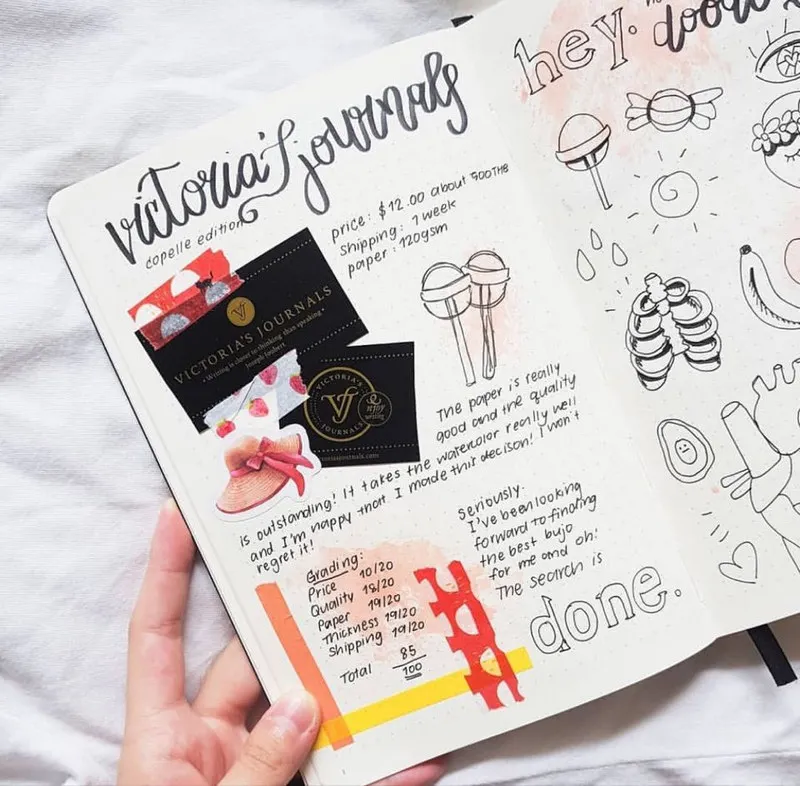 victoria's journals
copelle edition
price: $12.00 about 500THB
shipping: 1 week
paper: 120gsm
VICTORIA'S JOURNALS
• Writing is closer to thinking than speaking •
Joseph Joubert
VICTORIA'S
VJ
JOURNALS
enjoy
writing
The paper is really
good and the quality
is outstanding! It takes the watercolor really well
and I'm happy that I made this decison! I won't
regret it!
Grading:
Price 10/20
Quality 18/20
Paper 19/20
Thickness 19/20
Shipping 19/20
Total 85
100
seriously.
I've been looking
forward to finding
the best bujo
for me and oh!
The search is
done.
hey.